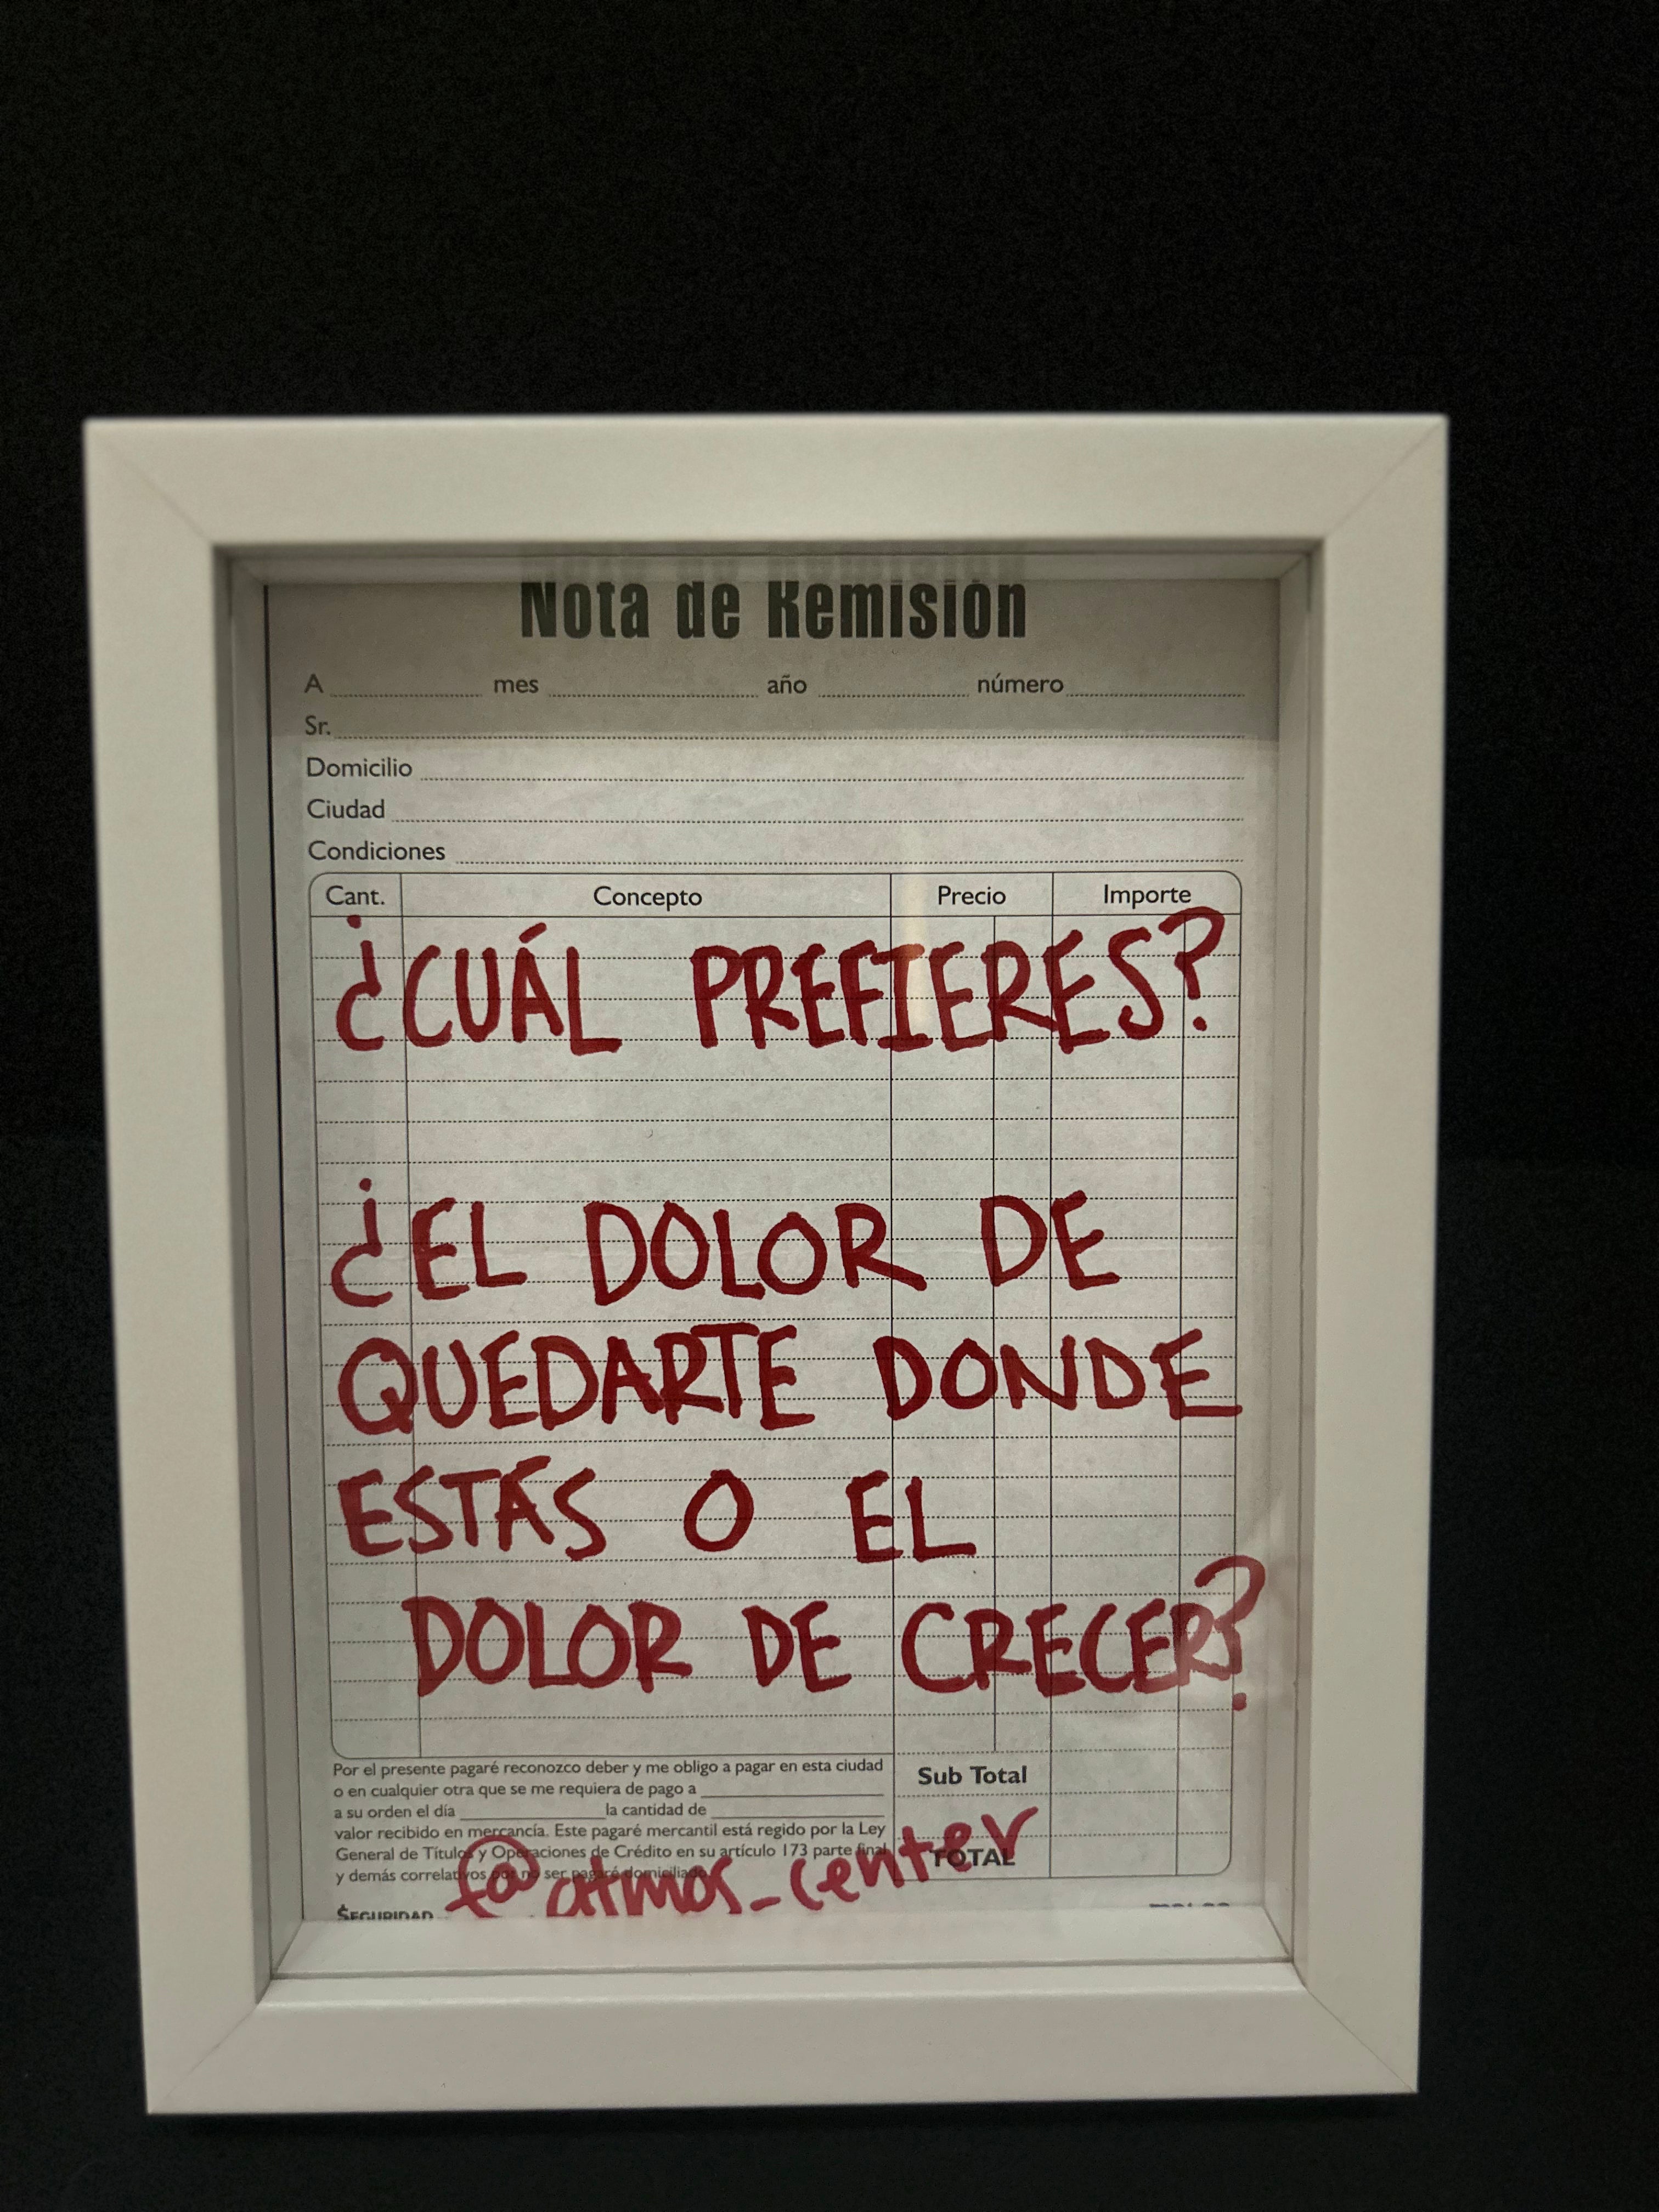 Nota de Remisión
A mes año número
Sr.
Domicilio
Ciudad
Condiciones
Cant. Concepto Precio Importe
¿CUÁL PREFIERES?
¿EL DOLOR DE
QUEDARTE DONDE
ESTÁS O EL
DOLOR DE CRECER?
Por el presente pagaré reconozco deber y me obligo a pagar en esta ciudad
o en cualquier otra que se me requiera de pago a
a su orden el día la cantidad de
valor recibido en mercancía. Este pagaré mercantil está regido por la Ley
General de Títulos y Operaciones de Crédito en su artículo 173 parte final
y demás correlativos por no ser pagaré domiciliado.
Sub Total
TOTAL
@atmos_center
SEGURIDAD